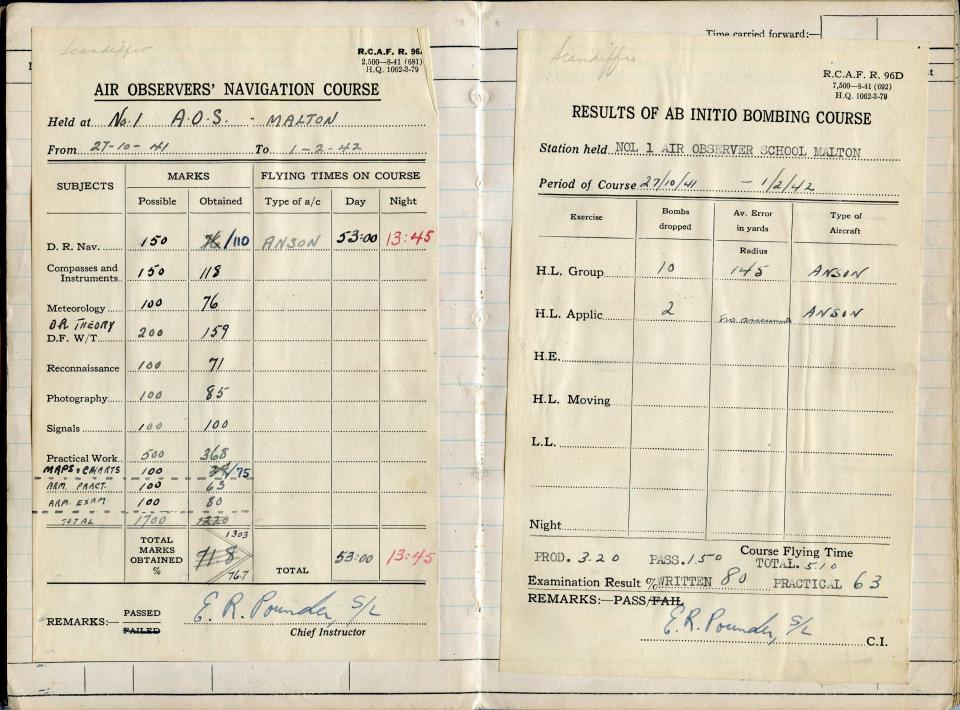 Scandiffio
R.C.A.F. R. 96
2,500—8-41 (681)
H.Q. 1062-3-79
AIR OBSERVERS' NAVIGATION COURSE
Held at No. 1 A.O.S. - MALTON
From 27-10-41 To 1-2-42
SUBJECTS MARKS FLYING TIMES ON COURSE
Possible Obtained Type of a/c Day Night
D. R. Nav. 150 76/110 ANSON 53:00 13:45
Compasses and
Instruments 150 118
Meteorology 100 76
DR THEORY
D.F. W/T 200 159
Reconnaissance 100 71
Photography 100 85
Signals 100 100
Practical Work 500 368
MAPS & CHARTS 100 /75
ARM. PRACT. 100 63
ARM. EXAM 100 80
TOTAL 1700 1220
1303
TOTAL
MARKS
OBTAINED
% 71.8 TOTAL 53:00 13:45
76.7
REMARKS:— PASSED
FAILED
E. R. Pounder, S/L
Chief Instructor
Time carried forward:—
Scandiffio
R.C.A.F. R. 96D
7,500—8-41 (692)
H.Q. 1062-3-79
RESULTS OF AB INITIO BOMBING COURSE
Station held NOL 1 AIR OBSERVER SCHOOL MALTON
Period of Course 27/10/41 - 1/2/42
Exercise Bombs dropped Av. Error in yards Type of Aircraft
Radius
H.L. Group 10 145 ANSON
H.L. Applic 2 ANSON
H.E.
H.L. Moving
L.L.
Night
Course Flying Time
PROD. 3.20 PASS. 1.50 TOTAL. 5.10
Examination Result % WRITTEN 80 PRACTICAL 63
REMARKS:—PASS/FAIL
E.R. Pounder, S/L
C.I.